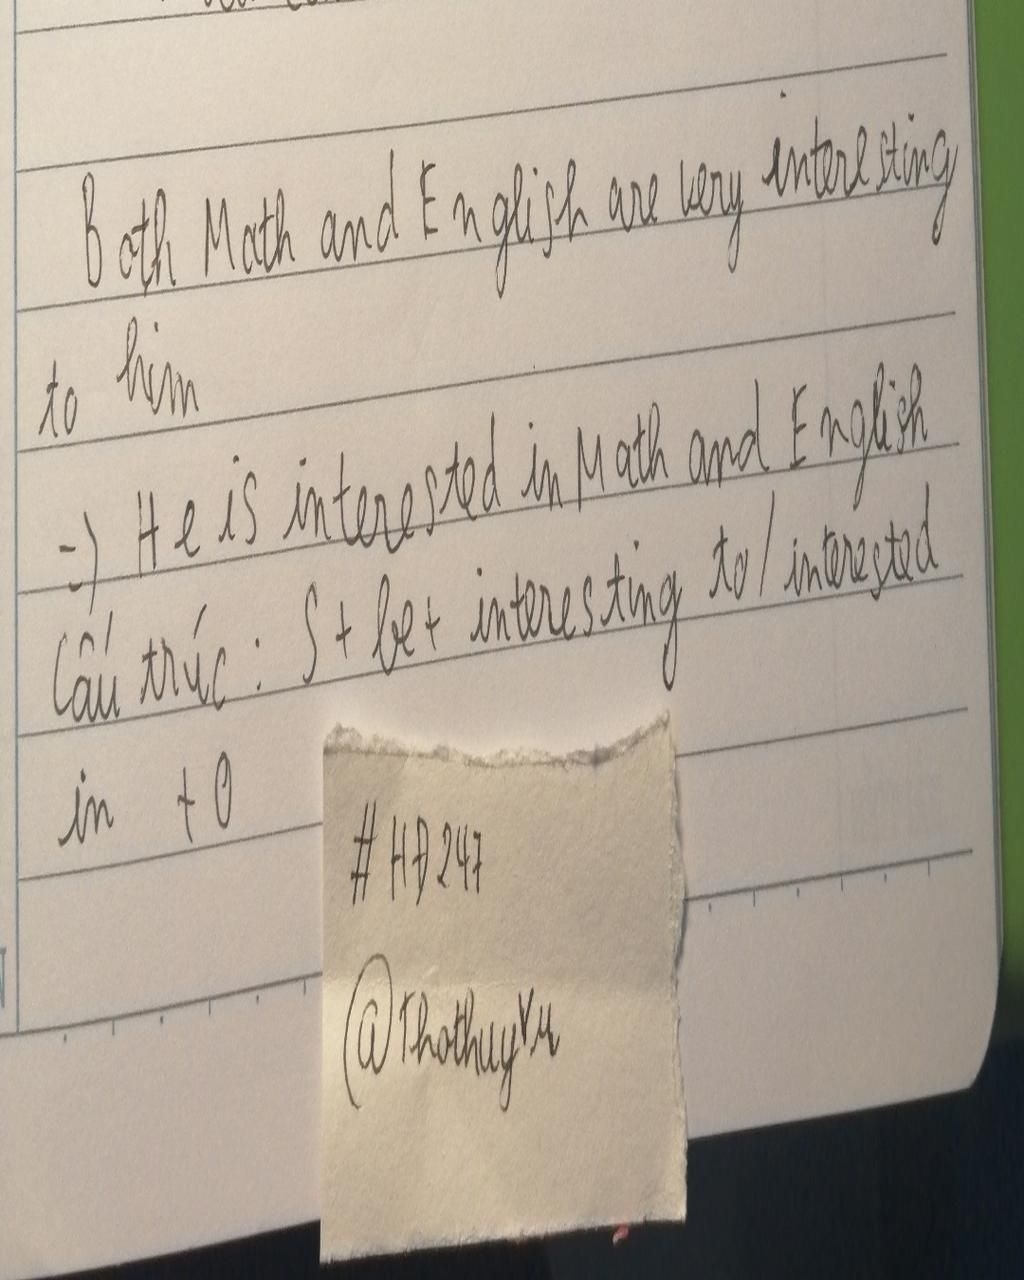 Both Math and English are very interesting
to him
=) He is interested in Math and English
Cấu trúc: S + be + interesting to / interested
in + O
#HĐ247
@ThothuyVu